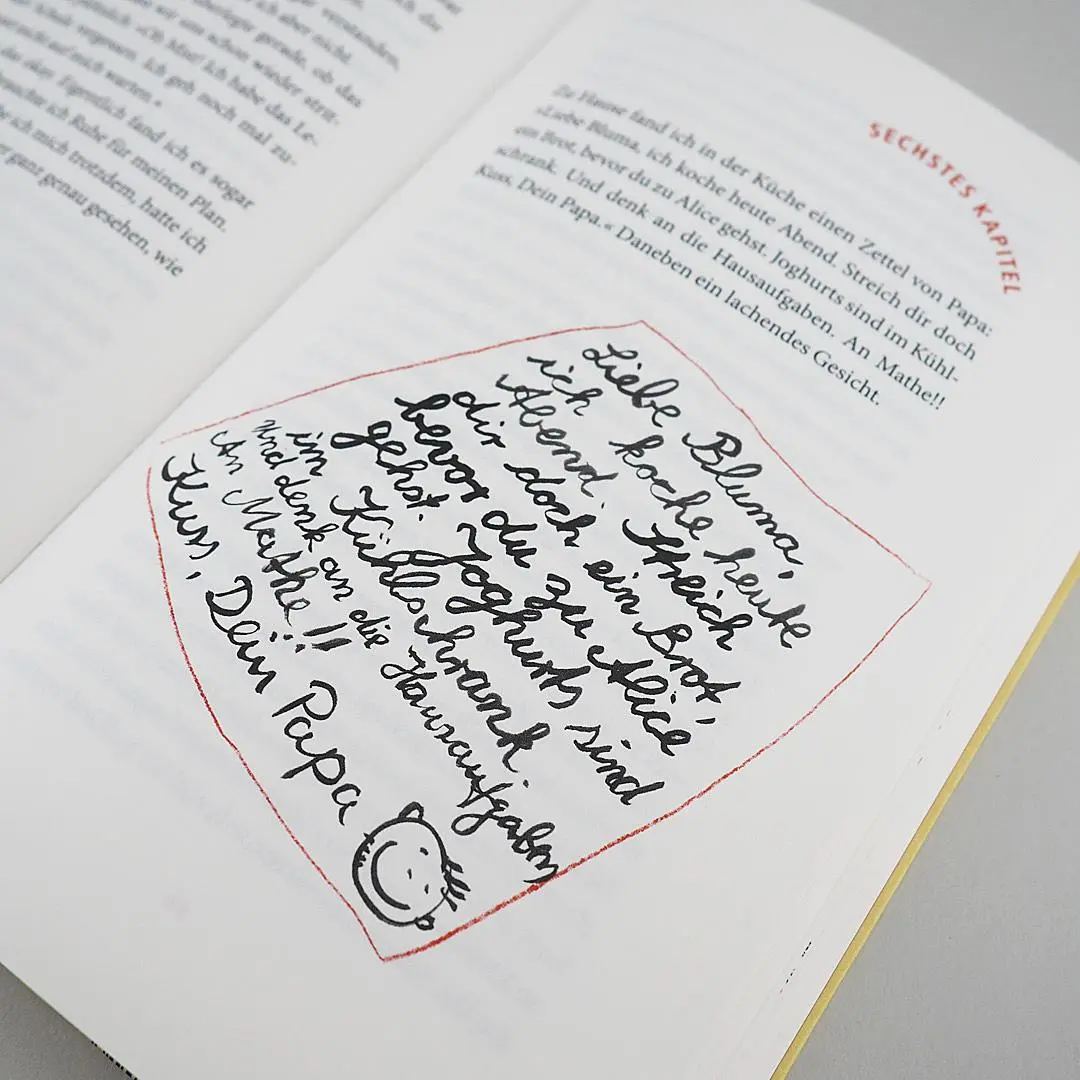 verstanden,
ich aber nicht.
gerade, ob das
wir uns schon wieder strit-
vergessen. Ich geh noch mal zu-
nicht auf mich warten.«
okay. Eigentlich fand ich es sogar
brauchte ich Ruhe für meinen Plan.
ich mich trotzdem, hatte ich
ganz genau gesehen, wie
SECHSTES KAPITEL
Zu Hause fand ich in der Küche einen Zettel von Papa:
»Liebe Bluma, ich koche heute Abend. Streich dir doch
ein Brot, bevor du zu Alice gehst. Joghurts sind im Kühl-
schrank. Und denk an die Hausaufgaben. An Mathe!!
Kuss, Dein Papa.« Daneben ein lachendes Gesicht.
Liebe Bluma,
ich koche heute
Abend. Streich
dir doch ein Brot,
bevor du zu Alice
gehst. Joghurts sind
im Kühlschrank.
Und denk an die Hausaufgaben
An Mathe!!
Kuss, Dein Papa